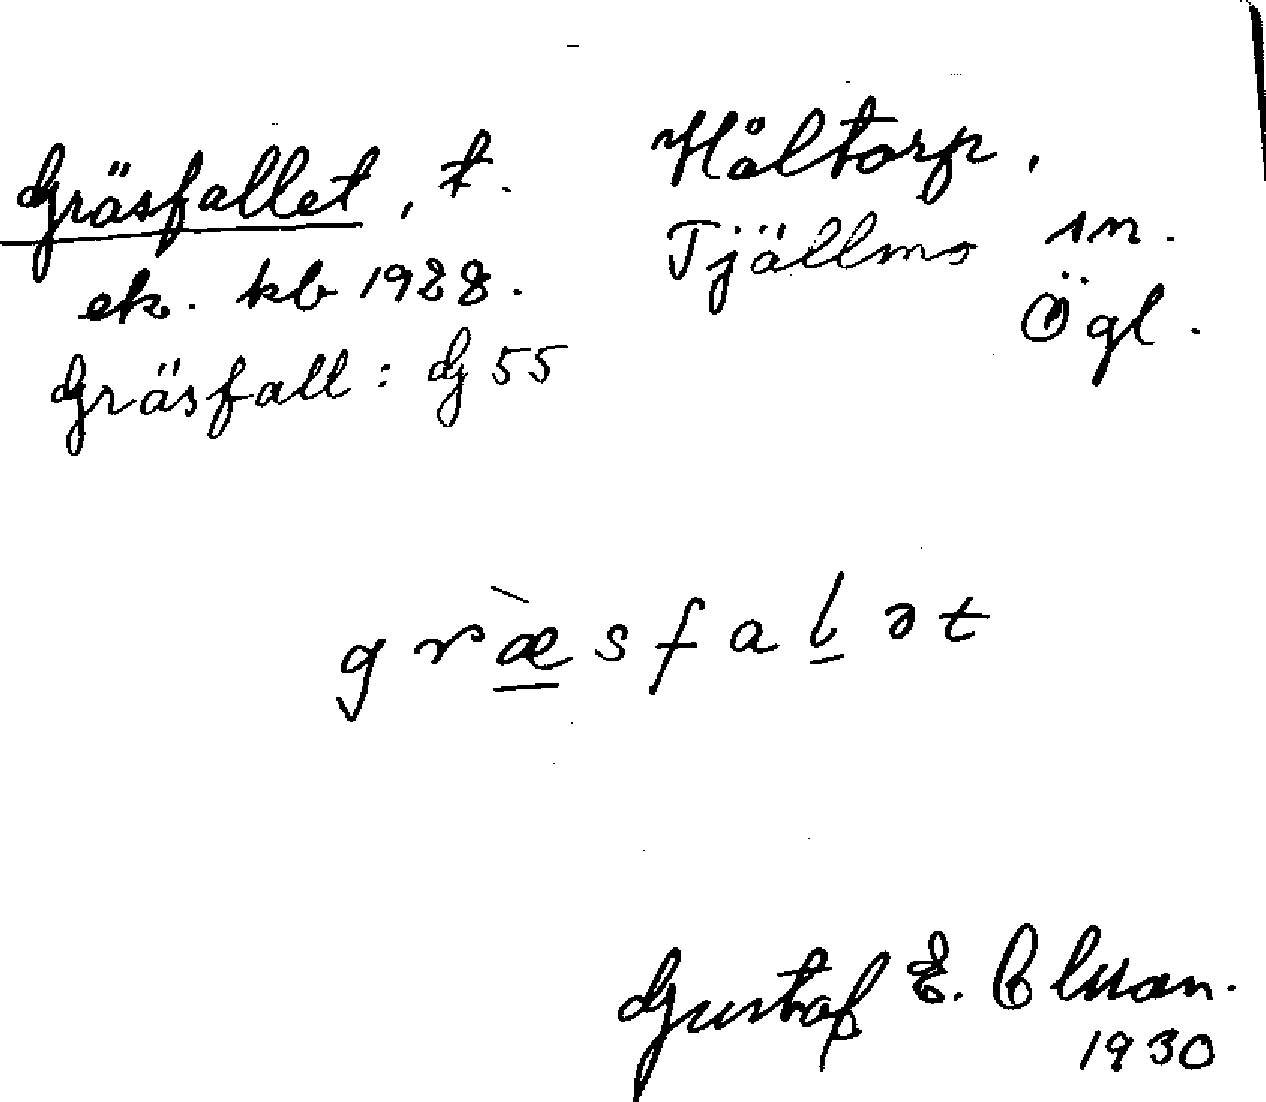 Gräsfallet, t. Håltorp,
Tjällmo sn.
ek. kb 1928. Ögl.
Gräsfall: G 55
græ̀sfalət
Gustaf E.
1930